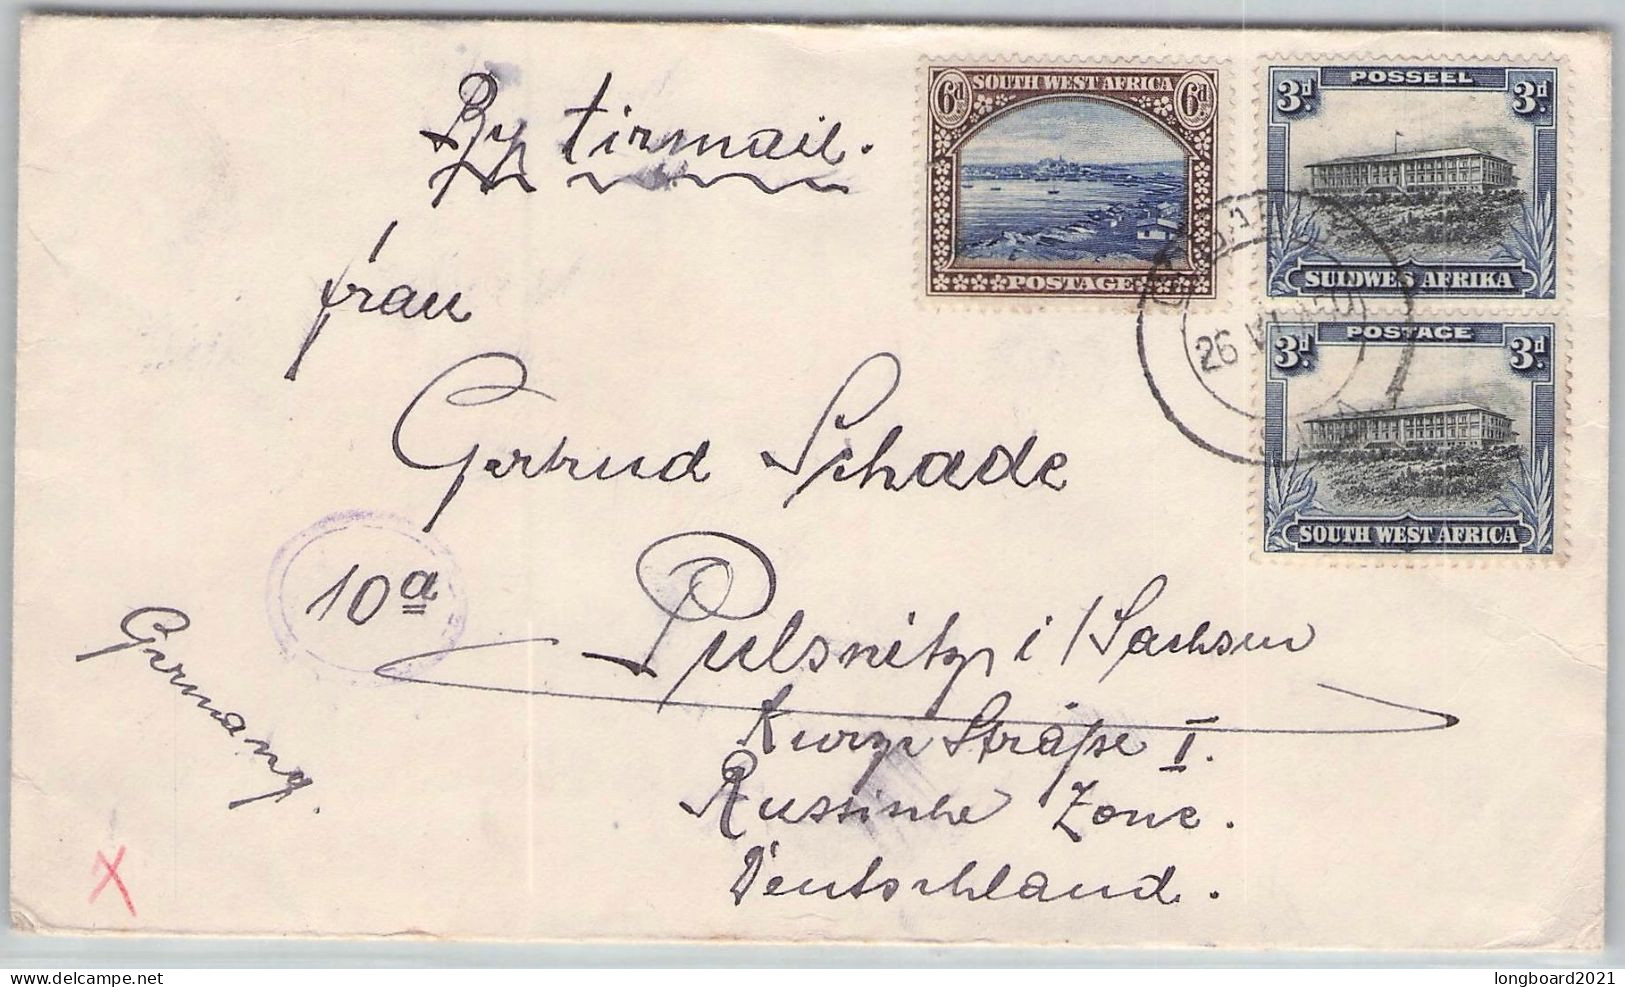 By Airmail.
SOUTH WEST AFRICA
6d 6d
POSTAGE
POSSEEL
3d 3d
SUIDWES AFRIKA
POSTAGE
3d 3d
SOUTH WEST AFRICA
26
frau
Gertrud Schade
10a
Pulsnitz i/Sachsen
Kurze Straße I.
Russische Zone.
Deutschland.
Germany.
X
delcampe.net
longboard2021